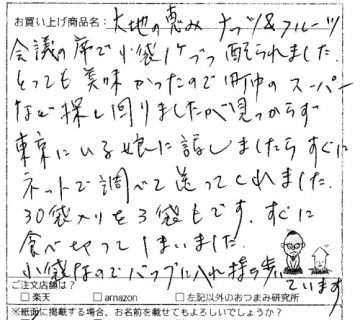 お買い上げ商品名: 大地の恵み ナッツ&フルーツ
会議の席で小袋1ケづつ配られました。
とっても美味かったので町中のスーパー
など探し回りましたが見つからず
東京にいる娘に話しましたらすぐに
ネットで調べて送ってくれました。
30袋入りを3袋もです、すぐに
食べ切ってしまいました。
小袋なのでバッグに入れ持ち歩い
ています
ご注文店舗は?
□楽天 □amazon □左記以外のおつまみ研究所
※紙面に掲載する場合、お名前を載せてもよろしいでしょうか?